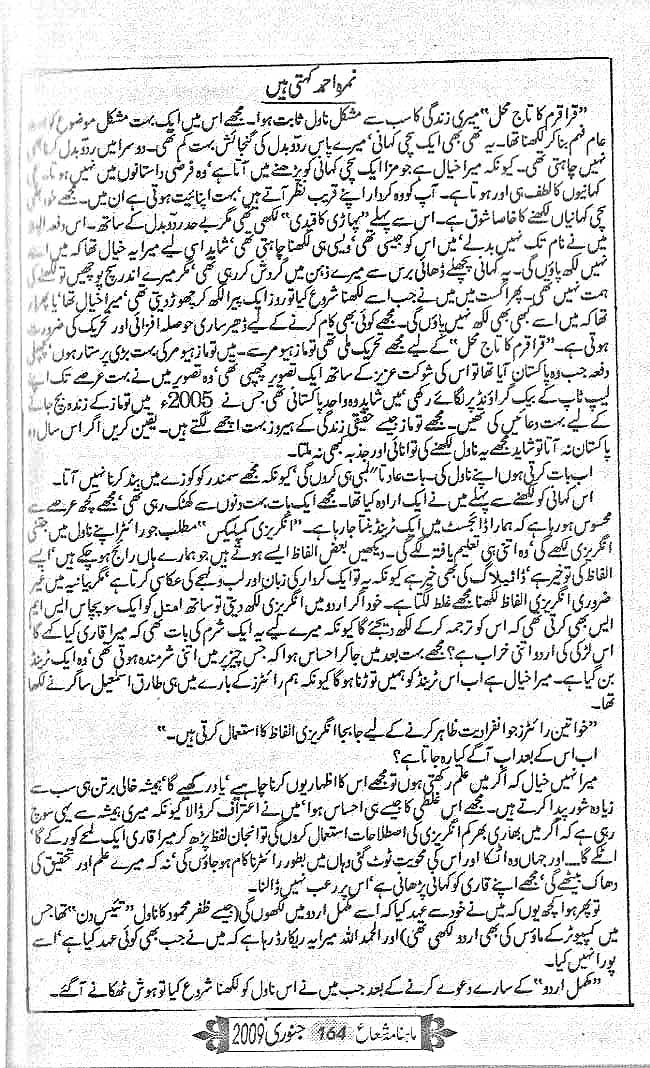 نمرہ احمد کہتی ہیں
”قراقرم کا تاج محل“ میری زندگی کا سب سے مشکل ناول ثابت ہوا۔ مجھے اس میں ایک بہت مشکل موضوع کو
عام فہم بنا کر لکھنا تھا۔ یہ بھی بھی ایک سچی کہانی‘ میرے پاس ردو بدل کی گنجائش بہت کم تھی۔ دوسرا میں ردو بدل کرنا
نہیں چاہتی تھی۔ کیونکہ میرا خیال ہے جو مزا ایک سچی کہانی کو پڑھنے میں آتا ہے‘ وہ فرضی داستانوں میں نہیں ہوتا
کہانیوں کا لطف ہی اور ہوتا ہے۔ آپ کو وہ کردار اپنے قریب نظر آتے ہیں‘ بہت اپنائیت ہوتی ہے ان میں۔ مجھے
سچی کہانیاں لکھنے کا خاصا شوق ہے۔ اس سے پہلے ”پہاڑی کا قیدی“ لکھی تھی مگر بے حد ردو بدل کے ساتھ۔ اس دفعہ
میں نے نام تک نہیں بدلے‘ میں اس کو جیسی تھی‘ ویسی ہی لکھنا چاہتی تھی‘ شاید اسی لیے میرا یہ خیال تھا کہ میں اسے
نہیں لکھ پاؤں گی۔ یہ کہانی پچھلے ڈھائی برس سے میرے ذہن میں گردش کر رہی تھی‘ مگر میرے اندر سچ پوچھیں تو لکھنے کی
ہمت نہیں تھی۔ پھر اگست میں میں نے جب اسے لکھنا شروع کیا تو روز ایک پیرا لکھ کر چھوڑ دیتی تھی‘ میرا خیال تھا‘
تھا کہ میں اسے کبھی بھی لکھ نہیں پاؤں گی۔ مجھے کوئی بھی کام کرنے کے لیے ڈھیر ساری حوصلہ افزائی اور تحریک کی ضرورت
ہوتی ہے۔ ”قراقرم کا تاج محل“ کے لیے مجھے تحریک ملی تھی توماز ہیومر سے۔ میں توماز ہیومر کی بہت بڑی پرستار ہوں‘ پچھلی
دفعہ جب وہ پاکستان آیا تھا تو اس کی شوکت عزیز کے ساتھ ایک تصویر چھپی تھی‘ وہ تصویر میں نے بہت عرصے تک اپنے
لیپ ٹاپ کے بیک گراؤنڈ پر لگائے رکھی‘ میں شاید وہ واحد پاکستانی تھی جس نے 2005ء میں توماز کے زندہ بچ جانے
کے لیے بہت دعائیں کی تھیں۔ مجھے توماز جیسے حقیقی زندگی کے ہیروز بہت اچھے لگتے ہیں۔ یقین کریں اگر اس سال وہ
پاکستان نہ آتا تو شاید مجھے یہ ناول لکھنے کی توانائی اور جذبہ بھی نہ ملتا۔
اب بات کرتی ہوں اپنے ناول کی۔ بات عادتاً لمبی ہی کروں گی‘ کیونکہ مجھے سمندر کو کوزے میں بند کرنا نہیں آتا۔
اس کہانی کو لکھنے سے پہلے میں نے ایک ارادہ کیا تھا۔ مجھے ایک بات بہت دنوں سے کھٹک رہی تھی‘ مجھے کچھ عرصے سے
محسوس ہو رہا ہے کہ ہمارا ڈائجسٹ میں ایک ٹرینڈ بنتا جا رہا ہے۔ ”انگریزی کمپلیکس“ مطلب جو رائٹر اپنے ناول میں جتنی
انگریزی لکھے گی‘ وہ اتنی ہی تعلیم یافتہ لگے گی۔ دیکھیں بعض الفاظ ایسے ہوتے ہیں جو ہمارے ہاں رائج ہو چکے ہیں‘ ایسے
الفاظ کی تو خیر ہے‘ ڈائیلاگ کی بھی خیر ہے کیونکہ یہ تو ایک کردار کی زبان اور لب و لہجے کی عکاسی کرتا ہے‘ مگر بیانیہ میں غیر
ضروری انگریزی الفاظ لکھنا مجھے غلط لگتا ہے۔ خود اگر اردو میں انگریزی لکھ دیتی تو ساتھ امتل کو ایک سو پچاس ایس ایم
ایس بھی کرتی تھی کہ اس کو ترجمہ کر کے لکھ دیجئے گا کیونکہ میرے لیے یہ ایک شرم کی بات تھی کہ میرا قاری کیا کہے گا
اس لڑکی کی اردو اتنی خراب ہے؟ مجھے بہت بعد میں جا کر احساس ہوا کہ جس چیز پر میں اتنی شرمندہ ہوتی تھی‘ وہ ایک ٹرینڈ
بن گیا ہے۔ میرا خیال ہے اب اس ٹرینڈ کو ہمیں توڑنا ہو گا کیونکہ ہم رائٹرز کے بارے میں ہی طارق اسمٰعیل ساگر نے لکھا
تھا۔
”خواتین رائٹرز جو انفرادیت ظاہر کرنے کے لیے جا بجا انگریزی الفاظ کا استعمال کرتی ہیں۔“
اب اس کے بعد اب آگے کیا رہ جاتا ہے؟
میرا نہیں خیال کہ اگر میں علم رکھتی ہوں تو مجھے اس کا اظہار یوں کرنا چاہیے‘ یاد رکھیے گا‘ ہمیشہ خالی برتن ہی سب سے
زیادہ شور پیدا کرتے ہیں۔ مجھے اس غلطی کا جیسے ہی احساس ہوا‘ میں نے اعتراف کر ڈالا کیونکہ میری ہمیشہ سے یہی سوچ
رہی ہے کہ اگر میں بھاری بھر کم انگریزی کی اصطلاحات استعمال کروں گی تو انجان لفظ پڑھ کر میرا قاری ایک لمحے کو رکے گا‘
اٹکے گا.... اور جہاں وہ اٹکا اور اس کی محویت ٹوٹ گئی وہاں میں بطور رائٹر ناکام ہو جاؤں گی‘ نہ کہ میرے علم اور تحقیق کی
دھاک بیٹھے گی‘ مجھے اپنے قاری کو کہانی پڑھانی ہے‘ اس پر رعب نہیں ڈالنا۔
تو پھر ہوا کچھ یوں کہ میں نے خود سے عہد کیا کہ اسے مکمل اردو میں لکھوں گی (جیسے ظفر محمود کا ناول ”تئیس دن“ تھا جس
میں کمپیوٹر کے ماؤس کی بھی اردو لکھی تھی) اور الحمد اللہ میرا یہ ریکارڈ رہا ہے کہ میں نے جب بھی کوئی عہد کیا ہے‘ اسے
پورا نہیں کیا۔
”مکمل اردو“ کے سارے دعوے کرنے کے بعد جب میں نے اس ناول کو لکھنا شروع کیا تو ہوش ٹھکانے آگئے۔
ماہنامہ شعاع 164 جنوری 2009